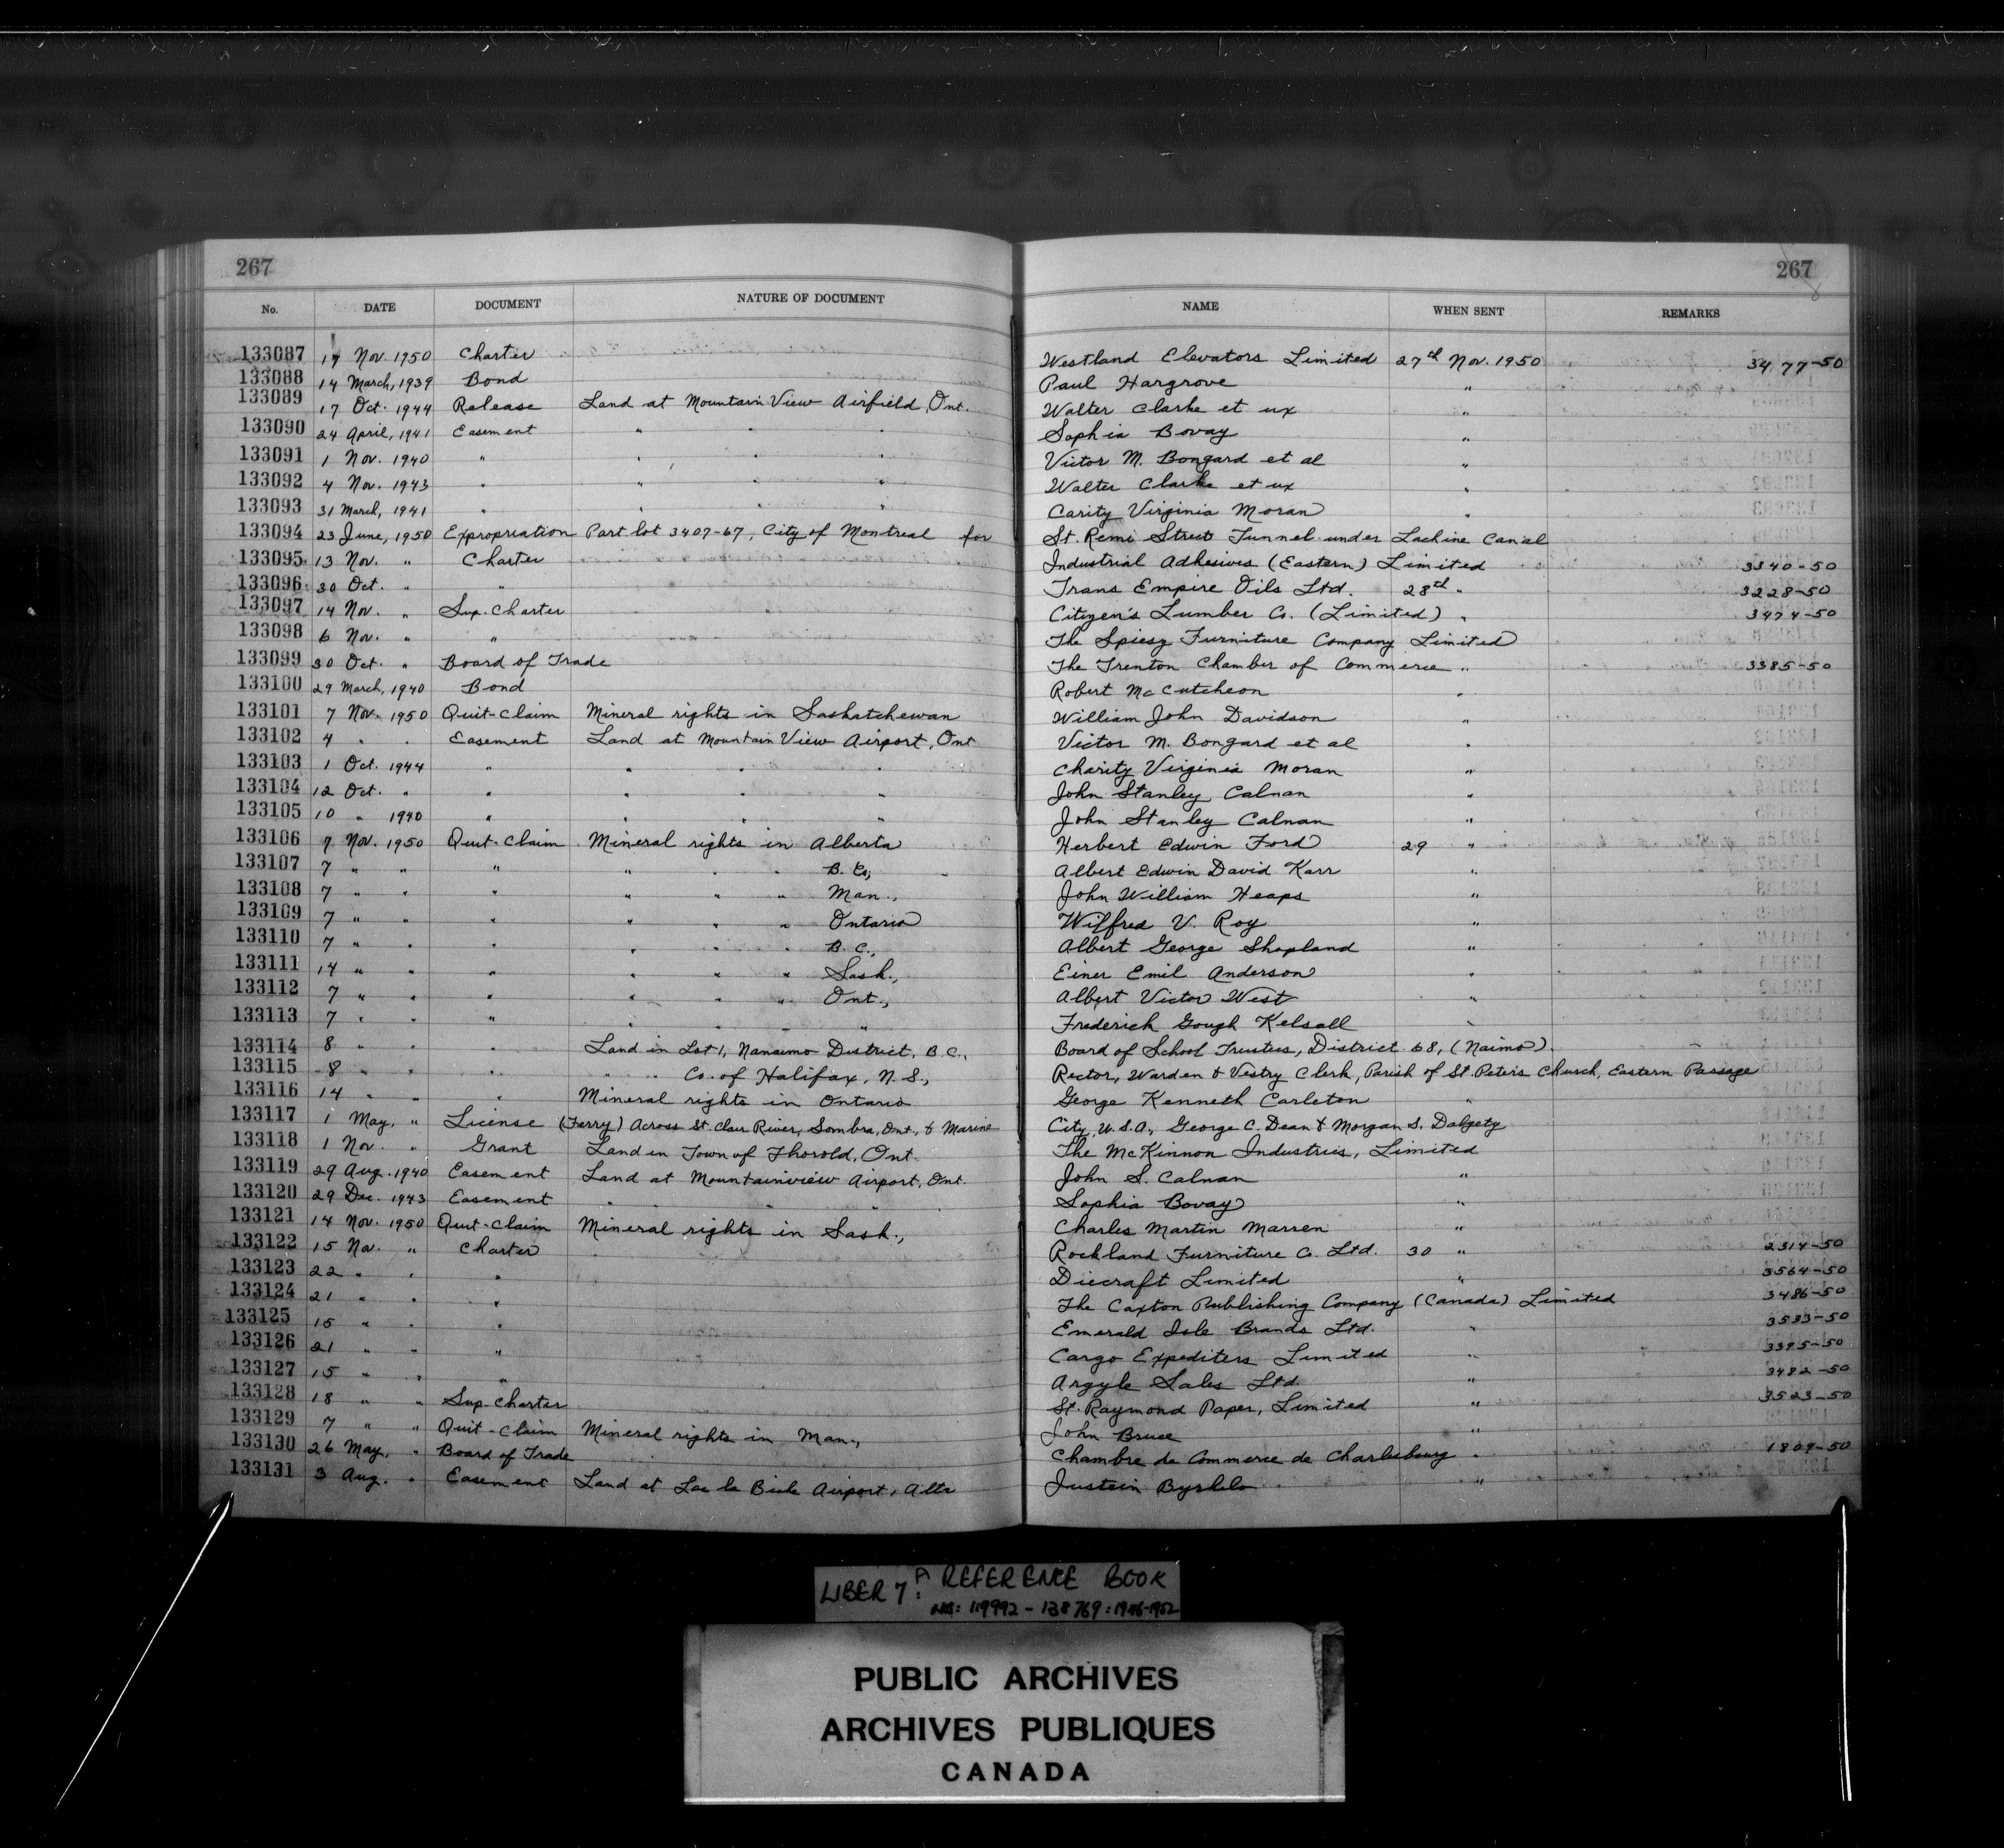 267 267
No. DATE DOCUMENT NATURE OF DOCUMENT NAME WHEN SENT REMARKS
133087 17 Nov. 1950 Charter Westland Elevators Limited 27th Nov. 1950 3477-50
133088 14 March, 1939 Bond Paul Hargrove "
133089 17 Oct. 1944 Release Land at Mountain View Airfield, Ont. Walter Clarke et ux "
133090 24 April, 1941 Easement " " " Sophia Bovay "
133091 1 Nov. 1940 " " " " Victor M. Bongard et al "
133092 4 Nov. 1943 " " " " Walter Clarke et ux "
133093 31 March, 1941 " " " " Carity Virginia Moran "
133094 23 June, 1950 Expropriation Part lot 3407-67, City of Montreal for St. Remi Street Tunnel under Lachine Canal
133095 13 Nov. " Charter Industrial Adhesives (Eastern) Limited 3340-50
133096 30 Oct. " " Trans Empire Oils Ltd. 28th " 3228-50
133097 14 Nov. " Sup. Charter Citizen's Lumber Co. (Limited) " 3474-50
133098 6 Nov. " " The Spiesz Furniture Company Limited
133099 30 Oct. " Board of Trade The Trenton Chamber of Commerce " 3385-50
133100 29 March, 1940 Bond Robert McCutcheon "
133101 7 Nov. 1950 Quit-Claim Mineral rights in Saskatchewan William John Davidson "
133102 4 " " Easement Land at Mountain View Airport, Ont Victor M. Bongard et al "
133103 1 Oct. 1944 " " " " Charity Virginia Moran "
133104 12 Oct. " " " " " John Stanley Calnan "
133105 10 " 1940 " " " " John Stanley Calnan "
133106 7 Nov. 1950 Quit-Claim Mineral rights in Alberta Herbert Edwin Ford 29 "
133107 7 " " " " " " B.C., Albert Edwin David Karr "
133108 7 " " " " " " Man., John William Heaps "
133109 7 " " " " " " Ontario Wilfred V. Roy "
133110 7 " " " " " " B.C., Albert George Shopland "
133111 14 " " " " " " Sask., Einer Emil Anderson "
133112 7 " " " " " " Ont., Albert Victor West "
133113 7 " " " " " " " Frederick Gough Kelsall "
133114 8 " " " Land in Lot 1, Nanaimo District, B.C., Board of School Trustees, District 68, (Naimo).
133115 8 " " " " " Co. of Halifax, N.S., Rector, Warden & Vestry Clerk, Parish of St. Peter's Church, Eastern Passage
133116 14 " " " Mineral rights in Ontario George Kenneth Carleton "
133117 1 May, " License (Ferry) Across St. Clair River, Sombra, Ont., & Marine City, U.S.A., George C. Dean & Morgan S. Dalgety
133118 1 Nov. " Grant Land in Town of Thorold, Ont. The McKinnon Industries, Limited
133119 29 Aug. 1940 Easement Land at Mountainview Airport, Ont. John S. Calnan "
133120 29 Dec. 1943 Easement " " " Sophia Bovay "
133121 14 Nov. 1950 Quit-Claim Mineral rights in Sask., Charles Martin Marren "
133122 15 Nov. " Charter Rockland Furniture Co. Ltd. 30 " 2314-50
133123 22 " " " Diecraft Limited " 3564-50
133124 21 " " " The Caxton Publishing Company (Canada) Limited 3486-50
133125 15 " " " Emerald Isle Brands Ltd. " 3533-50
133126 21 " " " Cargo Expediters Limited " 3395-50
133127 15 " " " Argyle Sales Ltd. " 3482-50
133128 18 " " Sup. Charter St. Raymond Paper, Limited " 3523-50
133129 7 " " Quit-Claim Mineral rights in Man., John Bruce "
133130 26 May, " Board of Trade Chambre de Commerce de Charlesbourg " 1809-50
133131 3 Aug. " Easement Land at Lac la Biche Airport, Alta Justein
LIBER 7A: REFERENCE BOOK
NOS: 119992-138769: 1946-1952
PUBLIC ARCHIVES
ARCHIVES PUBLIQUES
CANADA